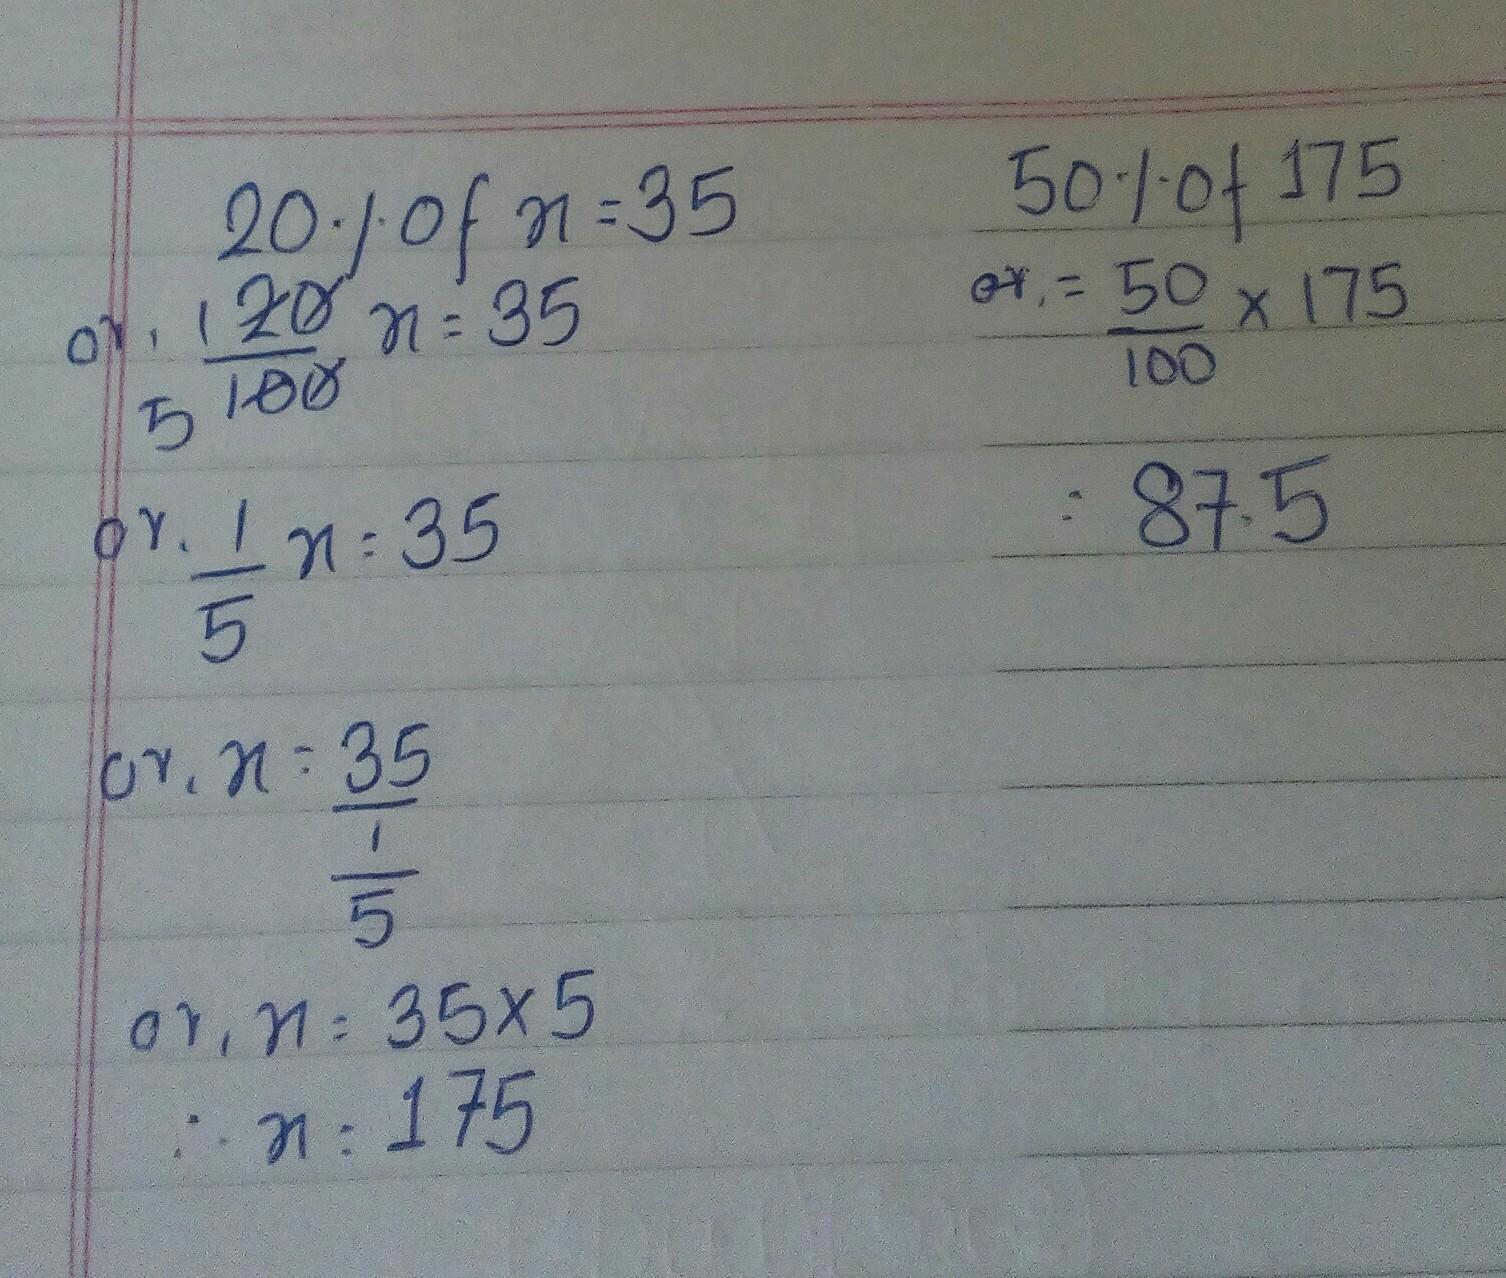 20% of x = 35
or, 1 20/100 5 x = 35
or, 1/5 x = 35
or, x = 35/(1/5)
or, x = 35 × 5
∴ x = 175
50% of 175
or, = 50/100 × 175
= 87.5